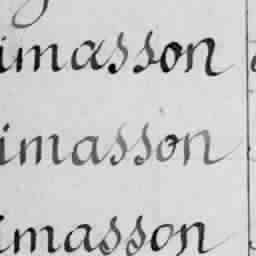 imasson
imasson
imasson